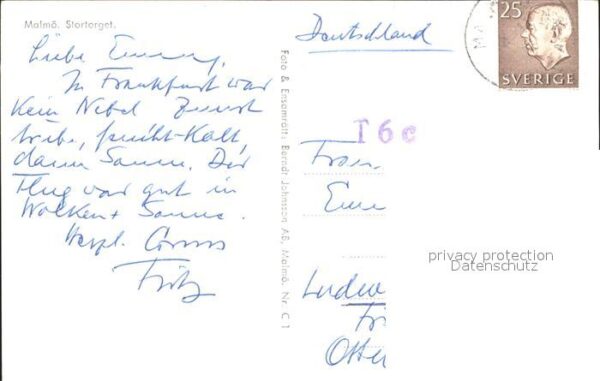 Malmö. Stortorget.
Liebe Emmy,
In Frankfurt war
kein Nebel Zuerst
trübe, feucht-kalt,
dann Sonne. Der
Flug war gut in
Wolken + Sonne.
Herzl. Gruss
Fritz
Foto & Ensamrätt: Berndt Johnsson AB, Malmö. Nr. C 1
Deutschland
25
SVERIGE
MA
T6c
Frau
Emm
Ludw
Otter
privacy protection
Datenschutz